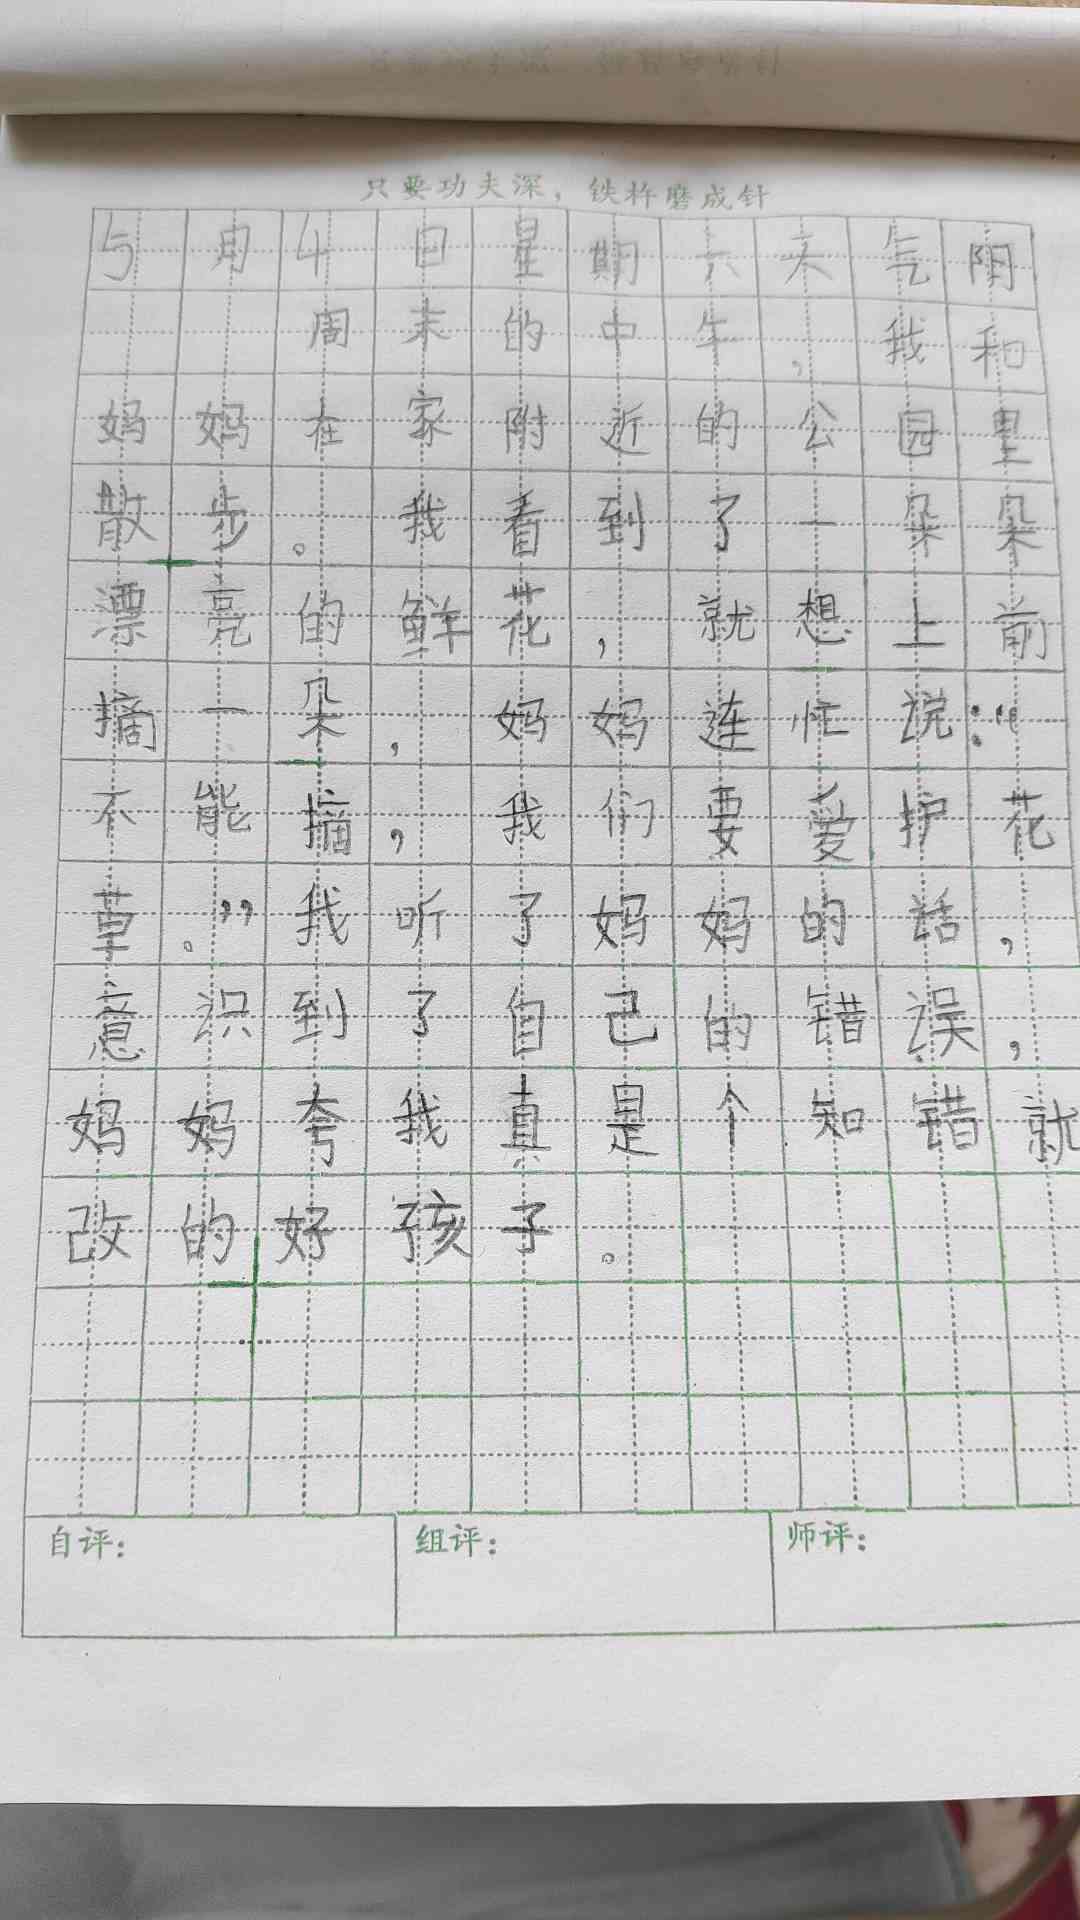 只要功夫深，铁杵磨成针
5月4日星期六天气阴
周末的中午，我和
妈妈在家附近的公园里
散步。我看到了一朵朵
漂亮的鲜花，就想上前
摘一朵，妈妈连忙说：“
不能摘，我们要爱护花
草。”我听了妈妈的话，
意识到了自己的错误，
妈妈夸我真是个知错就
改的好孩子。
自评：
组评：
师评：